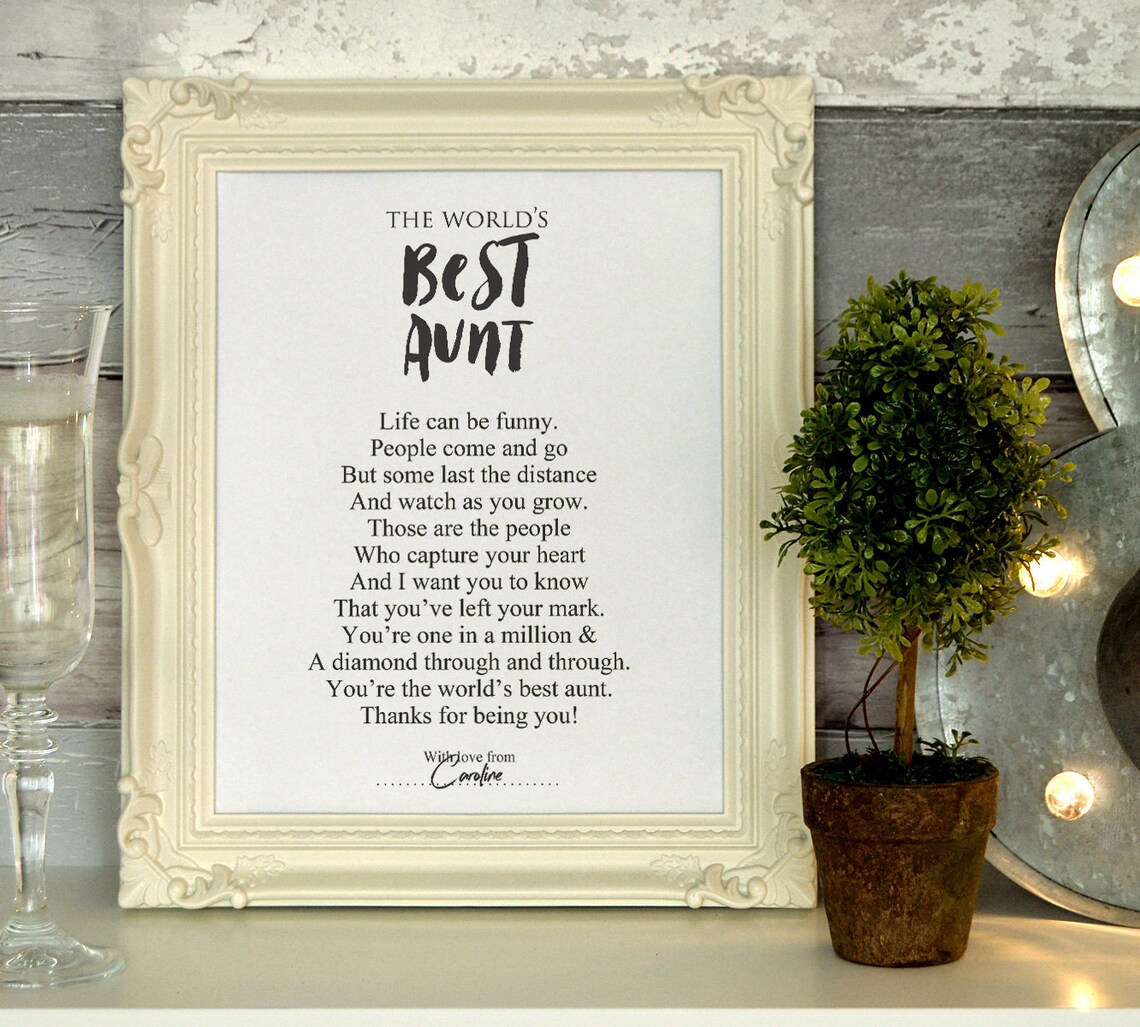 THE WORLD'S
BeST
AUNT
Life can be funny.
People come and go
But some last the distance
And watch as you grow.
Those are the people
Who capture your heart
And I want you to know
That you've left your mark.
You're one in a million &
A diamond through and through.
You're the world's best aunt.
Thanks for being you!
With love from
Caroline